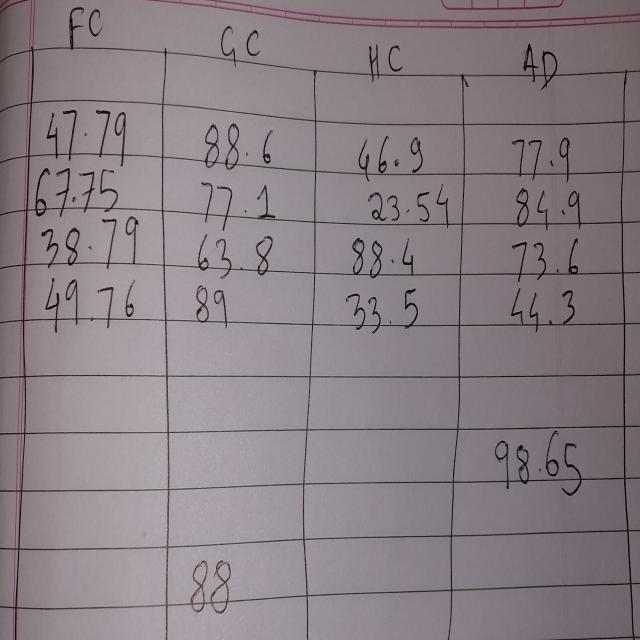 FC GC HC AD
47.79 88.6 46.9 77.9
67.75 77.1 23.54 84.9
38.79 63.8 88.4 73.6
49.76 89 33.5 44.3
98.65
88